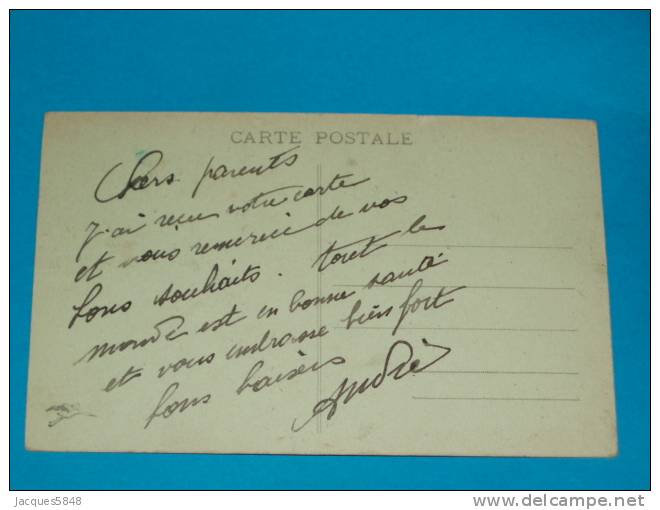 CARTE POSTALE
Chers parents
J'ai reçu votre carte
et vous remercie de vos
bons souhaits. tout le
monde est en bonne santé
et vous embrasse bien fort
bons baisers
André
Jacques5848
www.delcampe.net